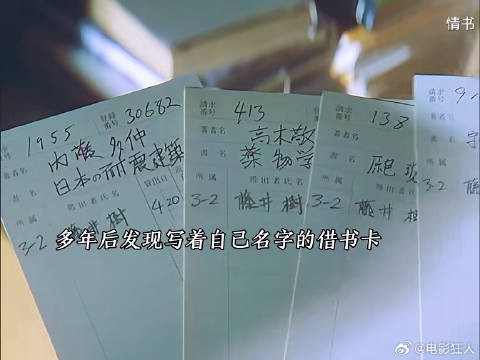 情书
請求番号 1955 登録番号 30682
著者名 内藤多仲
書名 日本の耐震建築
所属 帯出者氏名 貸出日
3-2 藤井樹 4.20
請求番号 413
著者名 高木敬
書名 薬物学
所属 帯出者氏名
3-2 藤井樹
請求番号 138
著者名
書名
所属 帯出者氏名
3-2 藤井樹
請求番号
著者名
書名
所属
3-2
多年后发现写着自己名字的借书卡
@电影狂人